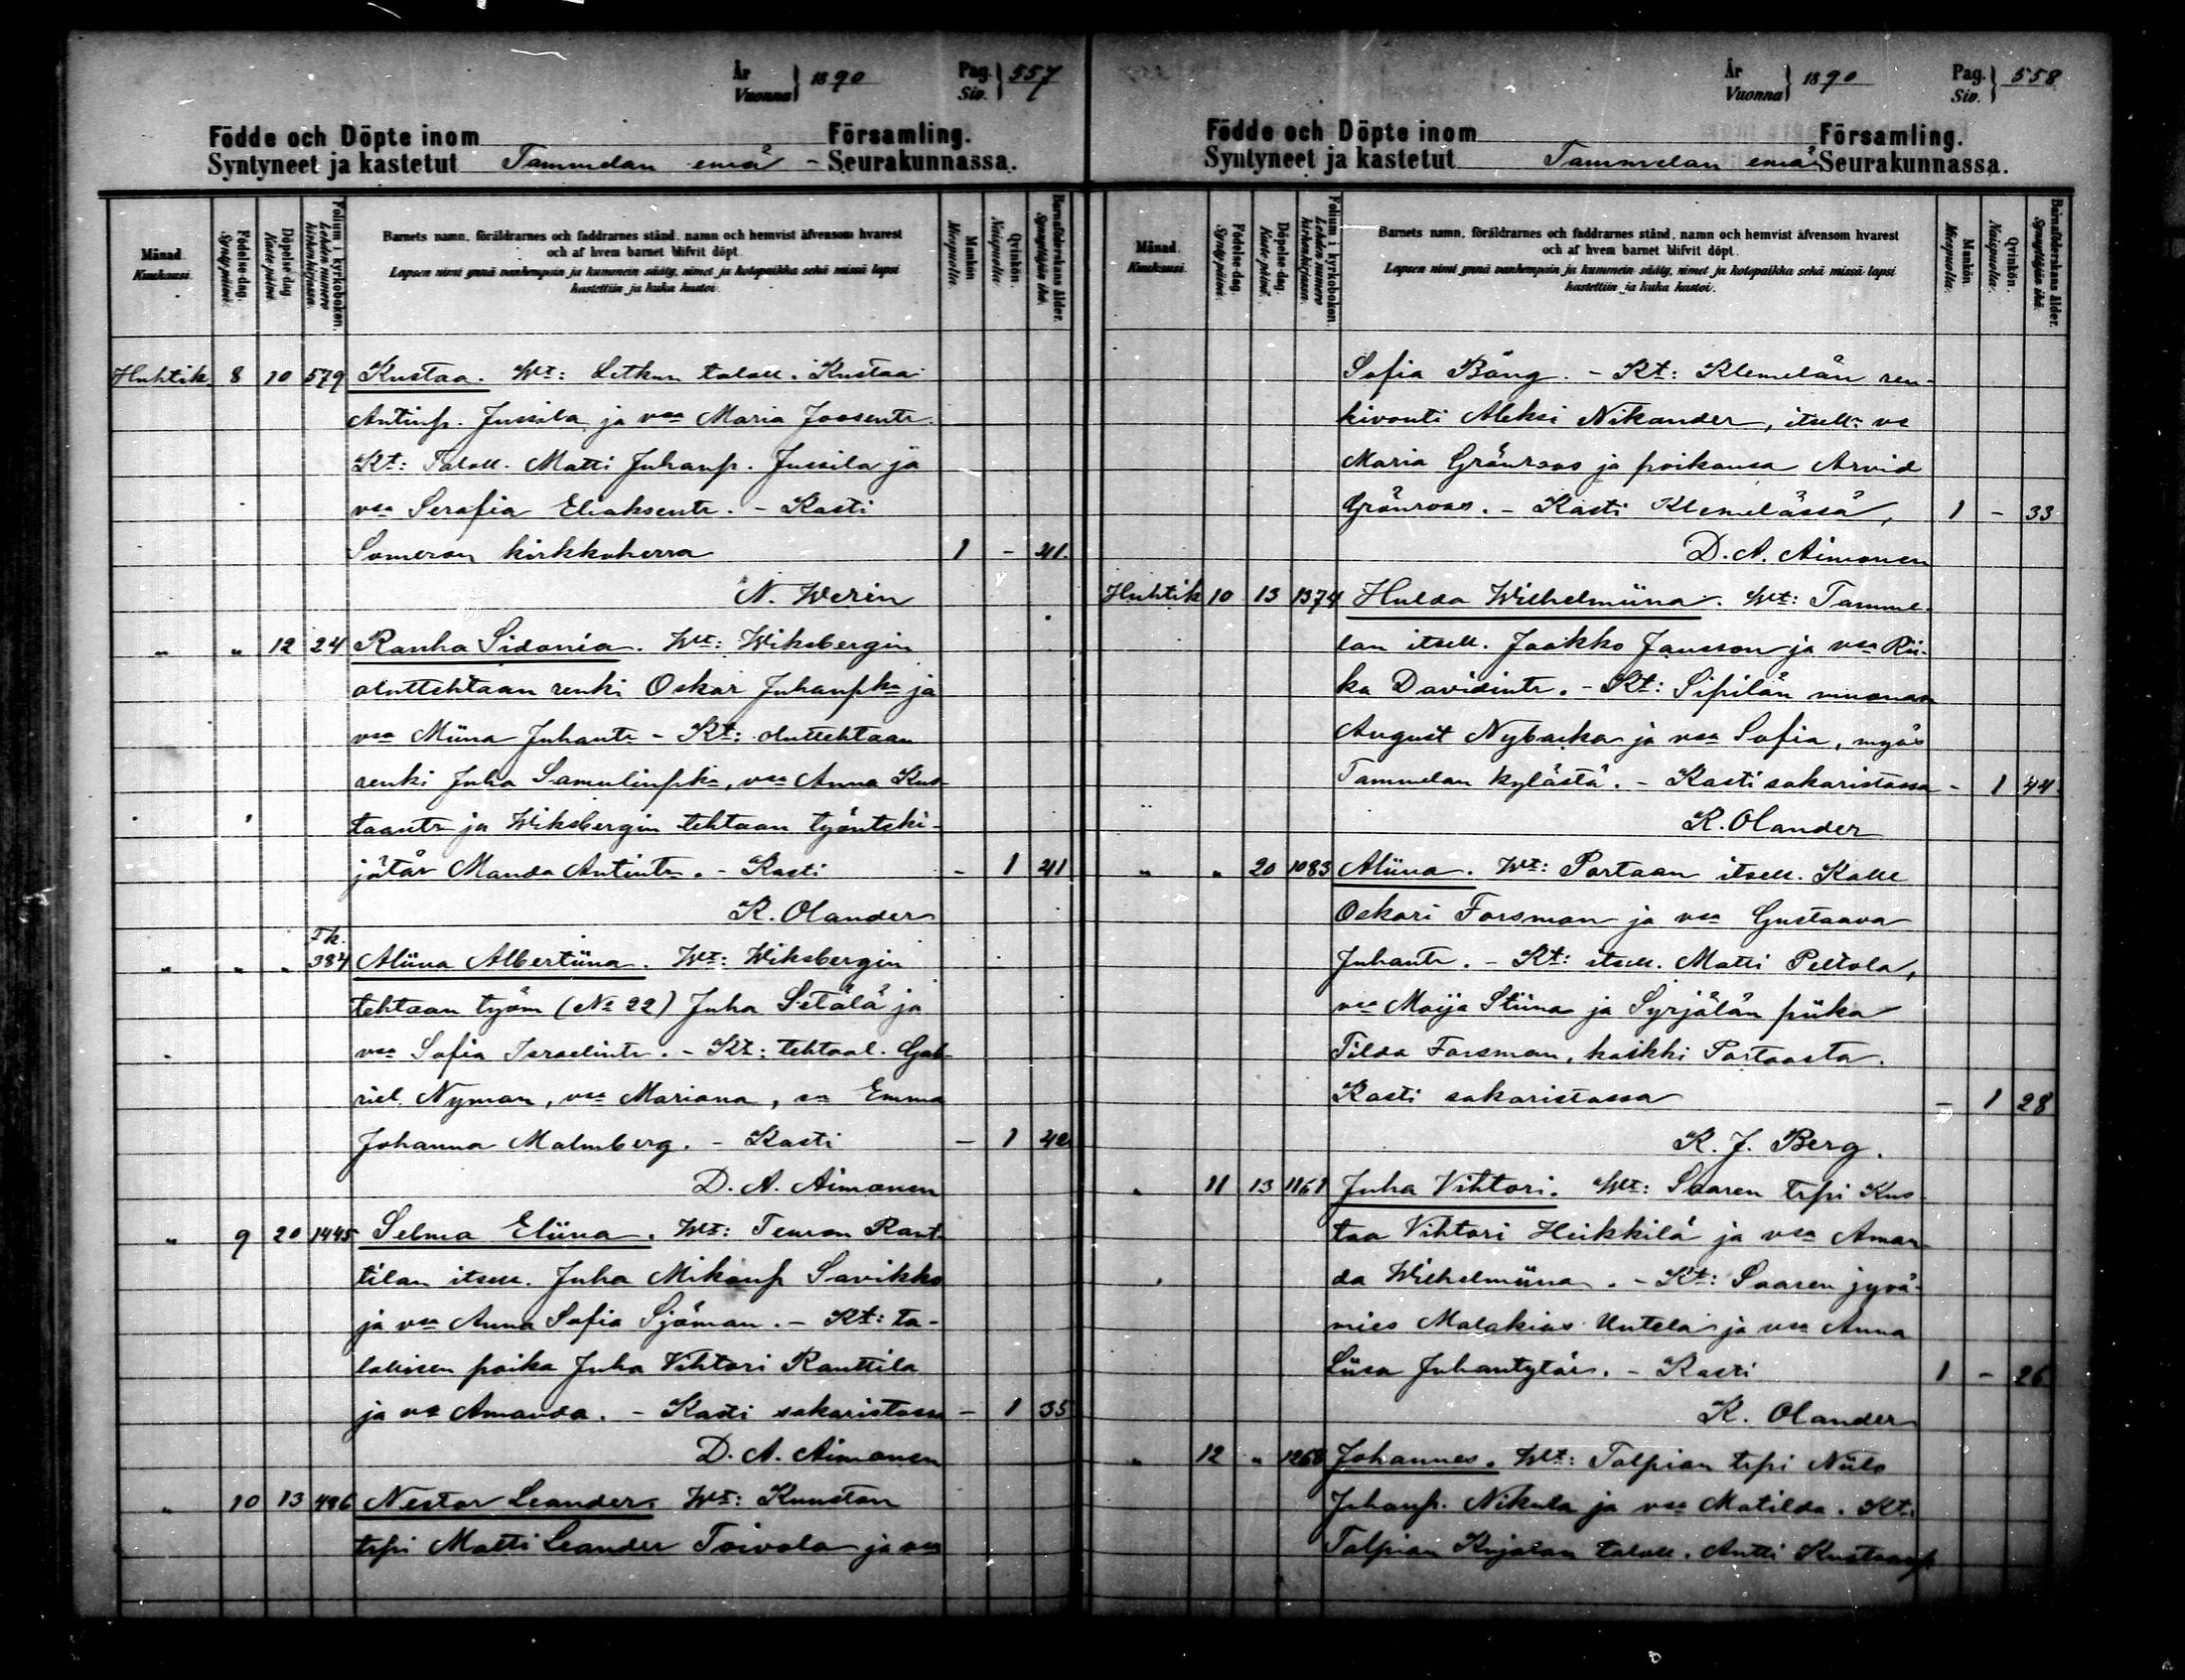 År 1890 Pag. 557
Vuonna Siv.
Födde och Döpte inom Församling.
Syntyneet ja kastetut Tammelan emä - Seurakunnassa.
Månad. Kuukausi. Födelse-dag. Syntypäivä. Döpelse-dag. Kastepäivä. Folium i kyrkoboken. Lehden numero kirkonkirjassa.
Barnets namn, föräldrarnes och faddrarnes stånd, namn och hemvist äfvensom hvarest
och af hvem barnet blifvit döpt.
Lapsen nimi ynnä vanhempain ja kummein sääty, nimet ja kotopaikka sekä missä lapsi
kastettiin ja kuka kastoi.
Mankön. Miespuolia. Qvinkön. Naispuolia. Barnaföderskans ålder. Synnyttäjän ikä.
Huhtik 8 10 579 Kustaa. Wt: Letkun taloll. Kustaa
Antinp. Jussila ja vsa Maria Joosentr.
Kt: Taloll. Matti Juhanp. Jussila ja
vsa Serafia Eliaksentr. - Kasti
Someron kirkkoherra 1 - 41.
N. Werin
" " 12 24 Rauha Sidonia. Wt: Wiksbergin
oluttehtaan renki Oskar Juhanpka ja
vsa Miina Juhantr - Kt: oluttehtaan
renki Juha Samulinpka, vsa Anna Kus-
taantr ja Wiksbergin tehtaan työnteki-
jätär Manda Antintr. - Kasti - 1 41
K. Olander
" " " Fk. 384 Aliina Albertiina. Wt: Wiksbergin
tehtaan työm (No 22) Juha Setälä ja
vsa Sofia Israelintr. - Kt: tehtaal. Gab-
riel Nyman, vsa Mariana, sa Emma
Johanna Malmberg. - Kasti - 1 42
D. A. Aimonen
" 9 20 1445 Selma Eliina. Wt: Teuron Rant-
tilan itsell. Juha Mikonp Savikko
ja vsa Anna Sofia Sjöman. - Kt: ta-
lollisen poika Juha Vihtori Ranttila
ja va Amanda. - Kasti sakaristossa - 1 35
D. A. Aimonen
" 10 13 486 Nestor Leander. Wt: Kuuston
trpi Matti Leander Toivola ja vsa
År 1890 Pag. 558
Vuonna Siv.
Födde och Döpte inom Församling.
Syntyneet ja kastetut Tammelan emä Seurakunnassa.
Månad. Kuukausi. Födelse-dag. Syntypäivä. Döpelse-dag. Kastepäivä. Folium i kyrkoboken. Lehden numero kirkonkirjassa.
Barnets namn, föräldrarnes och faddrarnes stånd, namn och hemvist äfvensom hvarest
och af hvem barnet blifvit döpt.
Lapsen nimi ynnä vanhempain ja kummein sääty, nimet ja kotopaikka sekä missä lapsi
kastettiin ja kuka kastoi.
Mankön. Miespuolia. Qvinkön. Naispuolia. Barnaföderskans ålder. Synnyttäjän ikä.
Sofia Bäng. - Kt: Klemelän ren-
kivouti Aleksi Nikander, itsell. va
Maria Grönroos ja poikansa Arvid
Grönroos. - Kasti Klemelässä, 1 - 33
D. A. Aimonen
Huhtik 10 13 1374 Hulda Wilhelmiina. Wt: Tamme-
lan itsell. Jaakko Jansson ja vsa Rii-
ka Davidintr. - Kt: Sipilän muonan
August Nybacka ja vsa Sofia, myös
Tammelan kylästä. - Kasti sakaristossa - 1 44
K. Olander
" " 20 1083 Aliina. Wt: Portaan itsell. Kalle
Oskari Forsman ja vsa Gustaava
Juhantr. - Kt: itsell. Matti Peltola,
vsa Maija Stiina ja Syrjälän piika
Tilda Forsman, kaikki Portaasta.
Kasti sakaristossa - 1 28
K. J. Berg.
" 11 13 1161 Juha Vihtori. Wt: Saaren trpi Kus-
taa Vihtori Heikkilä ja vsa Aman-
da Wilhelmiina. - Kt: Saaren jyvä-
mies Malakias Untela ja vsa Anna
Liisa Juhantytär. - Kasti 1 - 26
K. Olander
" 12 " 1268 Johannes. Wt: Talpian trpi Niilo
Juhanp. Nikula ja vsa Matilda. Kt:
Talpian Kujalan taloll. Antti Kustaanp